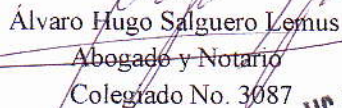 Álvaro Hugo Salguero Lemus
Abogado y Notario
Colegiado No. 3087